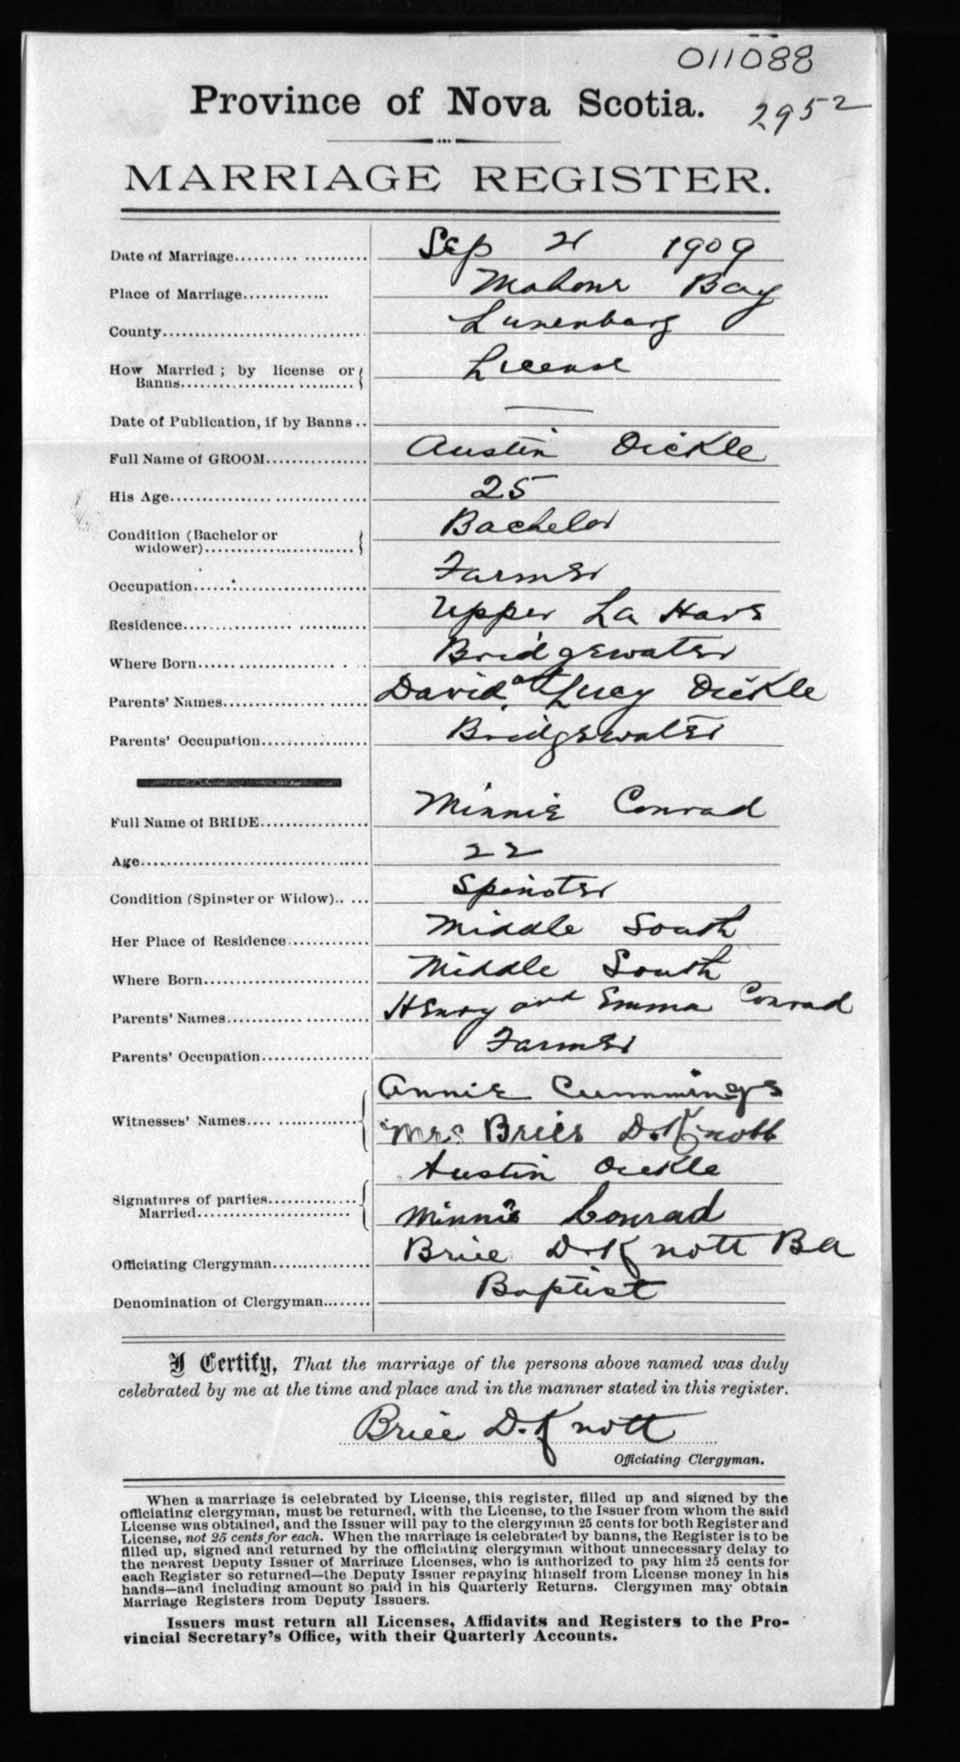 011088
Province of Nova Scotia.
2952
MARRIAGE REGISTER.
Date of Marriage Sep 21 1909
Place of Marriage Mahone Bay
County Lunenburg
How Married ; by license or Banns License
Date of Publication, if by Banns —
Full Name of GROOM Austin Oickle
His Age 25
Condition (Bachelor or widower) Bachelor
Occupation Farmer
Residence Upper La Have
Where Born Bridgewater
Parents' Names David and Lucy Oickle
Parents' Occupation Bridgewater
Full Name of BRIDE Minnie Conrad
Age 22
Condition (Spinster or Widow) Spinster
Her Place of Residence Middle South
Where Born Middle South
Parents' Names Henry and Emma Conrad
Parents' Occupation Farmer
Witnesses' Names Annie Cummings
Mrs Brice D. Knott
Signatures of parties Married Austin Oickle
Minnie Conrad
Officiating Clergyman Brice D. Knott BA
Denomination of Clergyman Baptist
I Certify, That the marriage of the persons above named was duly
celebrated by me at the time and place and in the manner stated in this register.
Brice D. Knott
Officiating Clergyman.
When a marriage is celebrated by License, this register, filled up and signed by the
officiating clergyman, must be returned, with the License, to the Issuer from whom the said
License was obtained, and the Issuer will pay to the clergyman 25 cents for both Register and
License, not 25 cents for each. When the marriage is celebrated by banns, the Register is to be
filled up, signed and returned by the officiating clergyman without unnecessary delay to
the nearest Deputy Issuer of Marriage Licenses, who is authorized to pay him 25 cents for
each Register so returned—the Deputy Issuer repaying himself from License money in his
hands—and including amount so paid in his Quarterly Returns. Clergymen may obtain
Marriage Registers from Deputy Issuers.
Issuers must return all Licenses, Affidavits and Registers to the Pro-
vincial Secretary's Office, with their Quarterly Accounts.